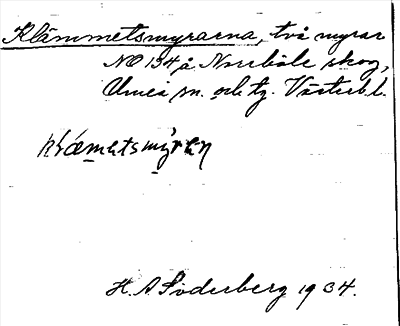 Klämmetsmyrarna, två myrar
NO 134 å Norrböle skog,
Umeå sn. och tg. Västerbl.
klæmetsmyren
H. A. Söderberg 1934.